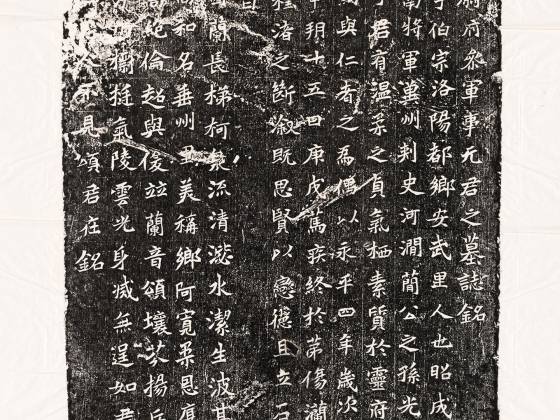 尉府叅軍事元君之墓誌銘
字伯宗洛陽都鄉安武里人也昭成
南將軍冀州刺史河澗簡公之孫光
君有溫柔之貞氣栖素質於靈府
與仁者之為儔以永平四年歲次
十五日庚戌篤疾終於第傷
之斷溆既思賢以戀德且立石
曰
蘭長梯柯䋣流清漨水潔生波其
和名垂州里美稱鄉阿寬柔恩厚
絕倫超與儁竝蘭音頌壤芬揚岳
挺氣陵雲光身滅無逞如君
不見頌君在銘